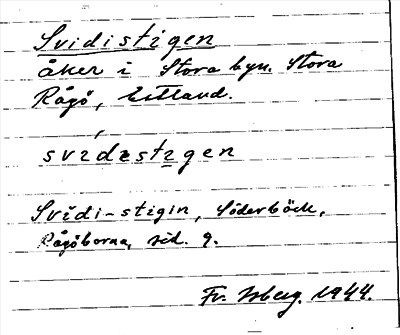 Svidistigen
åker i Stora byn. Stora
Rågö, Estland.
svɩdɩstɩgen
Svǐdi-stigin, Söderbäck,
Rågöborna, sid. 9.
Fr. Isberg. 1944.